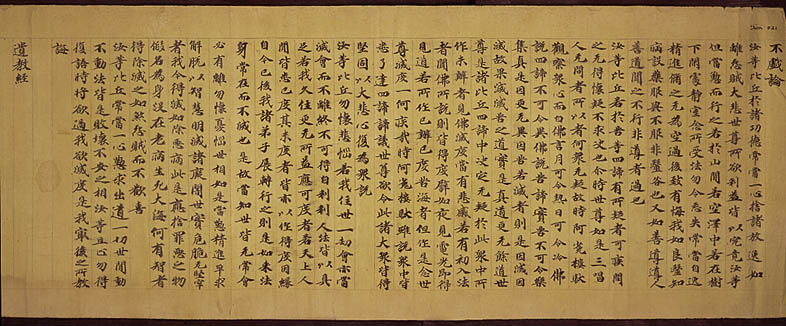 不戲論
汝等比丘於諸功德常當一心捨諸放逸如
離怨賊大悲世尊所欲利益皆以究竟汝等
但當懃而行之若於山間若空澤中若在樹
下閑處靜室念所受法勿令忘失常當自勉
精進修之无為空過後致有悔我如良醫知
病說藥服與不服非醫咎也又如善導導人
善道聞之不行非導者過也
汝等比丘若於苦等四諦有所疑者可疾問
之无得懷疑不求決也尒時世尊如是三唱
人无問者所以者何衆无疑故時阿㝹樓馱
觀察衆心而白佛言月可令熱日可令冷佛
說四諦不可令異佛說苦諦實苦不可令樂
集真是因更无異因苦若滅者則是因滅因
滅故果滅滅苦之道實是真道更无餘道世
尊是諸比丘四諦中決定无疑於此衆中所
作未辦者見佛滅度當有悲感若有初入法
者聞佛所說則皆得度譬如夜見電光即得
見道若所作已辦已度苦海者但作是念世
尊滅度一何疾哉時阿㝹樓馱雖說衆中皆
悉了達四諦諦議世尊欲令此諸大衆皆得
堅固以大悲心復為衆說
汝等比丘勿懷悲惱若我住世一劫會亦當
滅會而不離終不可得自利利人法皆以具
足若我久住更无所益應可度者若天上人
間皆悉已度其未度者皆亦以作得度因緣
自今已後我諸弟子展轉行之則是如來法
身常在而不滅也是故當知世皆无常會
必有離勿懷憂惱世相如是當懃精進早求
解脫以智慧明滅諸癡闇世實危脆无堅牢
者我今得滅如除惡病此是應捨罪惡之物
假名為身沒在老病生死大海何有智者
得除滅之如煞怨賊而不歡喜
汝等比丘常當一心懃求出道一切世間動
不動法皆是敗壞不安之相汝等且止勿得
復語時將欲過我欲滅度是我最後之所教
誨
遺教經